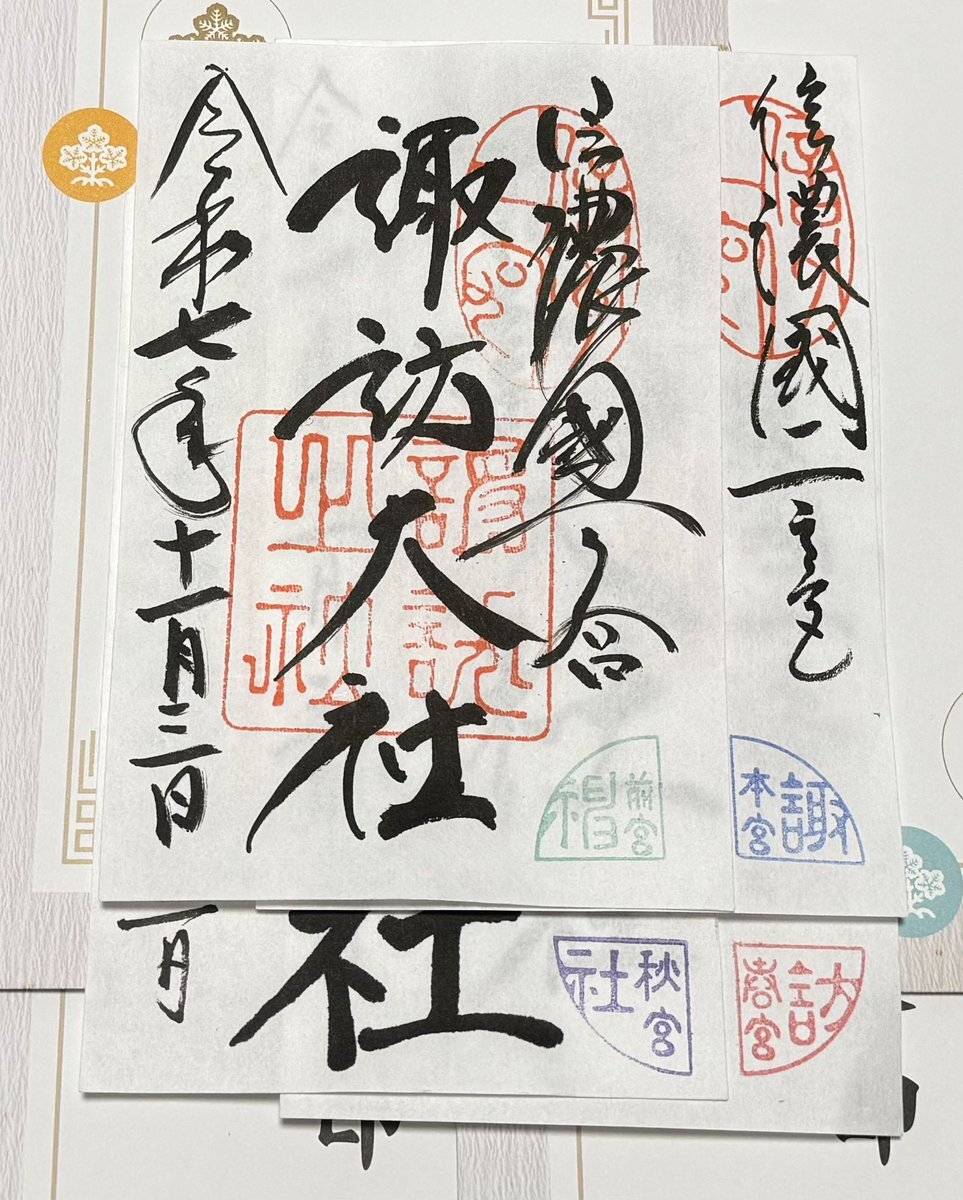 信濃國一之宮
信濃國一
諏訪大社
令和七年十一月三日
前宮
諏
本宮
社
一月
秋宮
社
訪
春宮
印
印